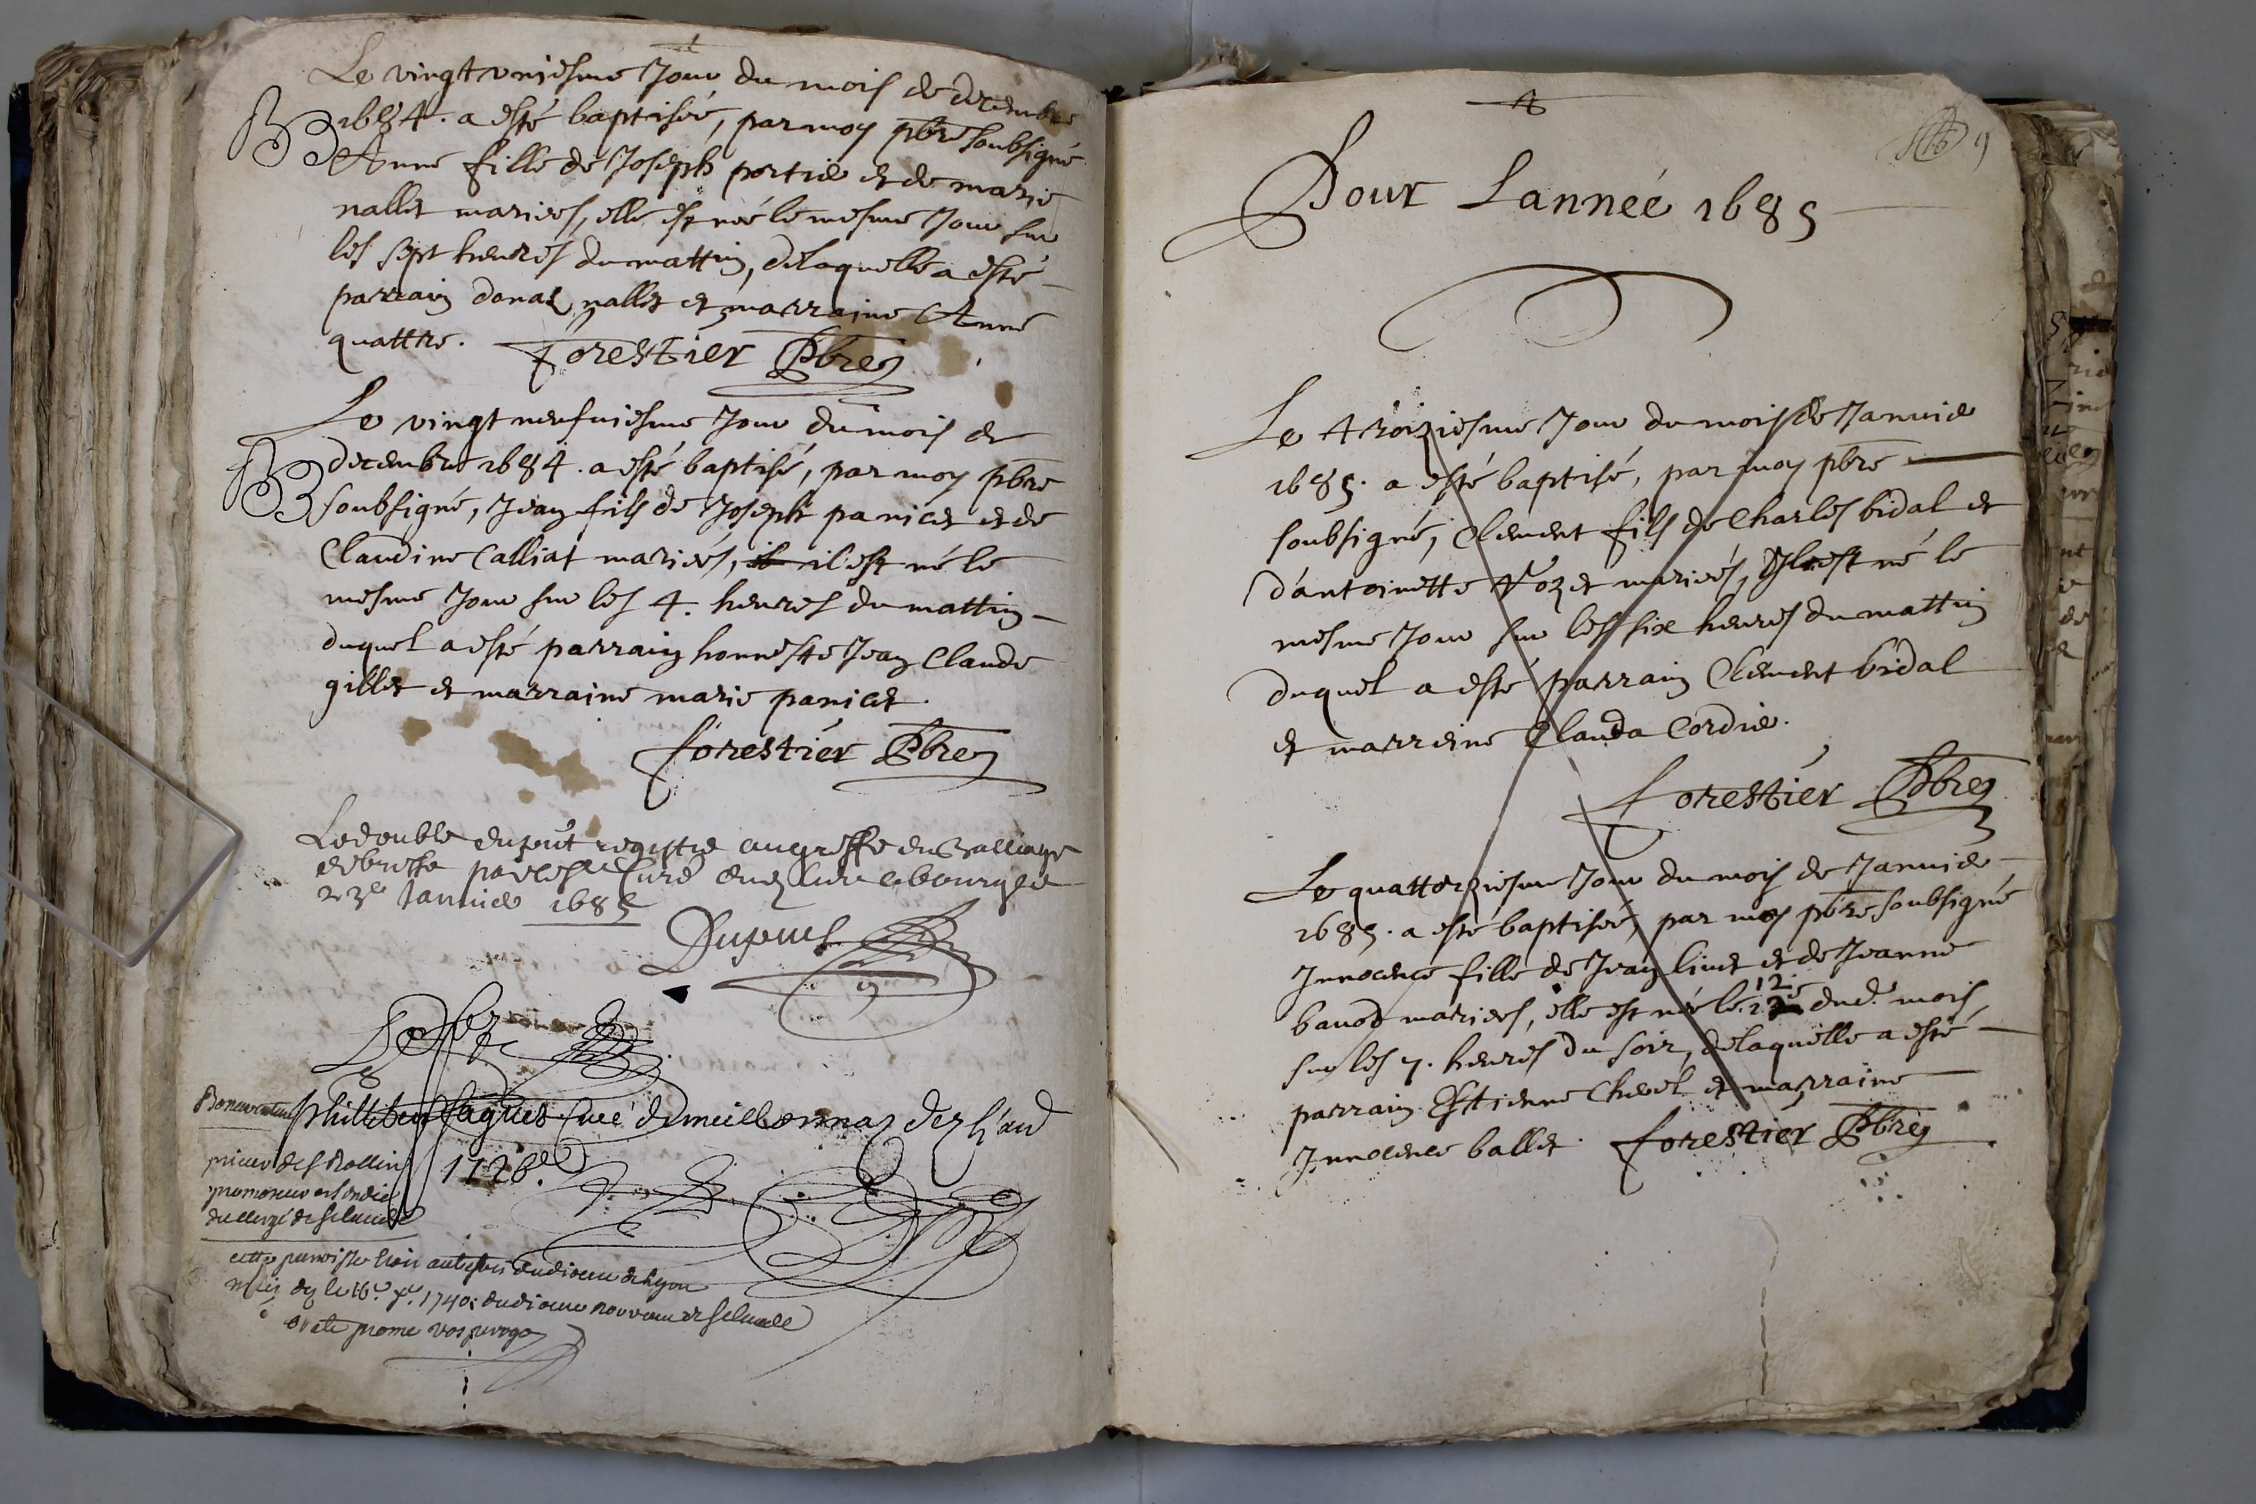 Le vingt uniesme Jour du mois de decembre
1684. a esté baptisée, par moy pbre soubsigné
Anne fille de Joseph portier et de marie
nallet mariees, elle est née le mesme Jour sur
les sept heures du mattin, de laquelle a esté
parrain donat nallet et marraine Anne
quattre. forestier Pbre
Le vingt neufuiesme Jour du mois de
decembre 1684. a esté baptisé, par moy pbre
soubsigné, Jean fils de Joseph panicet et de
Claudine Calliat mariées, il est né le
mesme Jour sur les 4. heures du mattin
duquel a esté parrain honneste Jean Claude
gillet et marraine marie panicet.
forestier Pbre
Le double du registre au greffe du Balliage
de bresse par le Sr Curé
23e Januier 1685
Dupuus
Bonaventure Philibert curé de meillonnaz
1726.
prieur des
promoteur et sindic
du clergé de st claude
cette paroisse étoit autrefois du diocese de Lyon
mais dez le 1740: du diocese nouveau de st claude
orate pro me vos
9
Pour Lannée 1685
Le troiziesme Jour du mois de Januier
1685. a esté baptisé, par moy pbre
soubsigné, Clement fils de Charles bidal et
d'antoinette mariées, Il est né le
mesme Jour sur les six heures du mattin
duquel a esté parrain Clement bidal
et marreine Clauda Cordier.
forestier Pbre
Le quattorziesme Jour du mois de Januier
1685. a esté baptisée, par moy pbre soubsigné
Innocence fille de Jean liuet et de Jeanne
bauod mariees, elle est née le 12e dud. mois
sur les 7. heures du soir, de laquelle a esté
parrain Estienne Cheuel et marraine
Innocence ballet. forestier Pbre